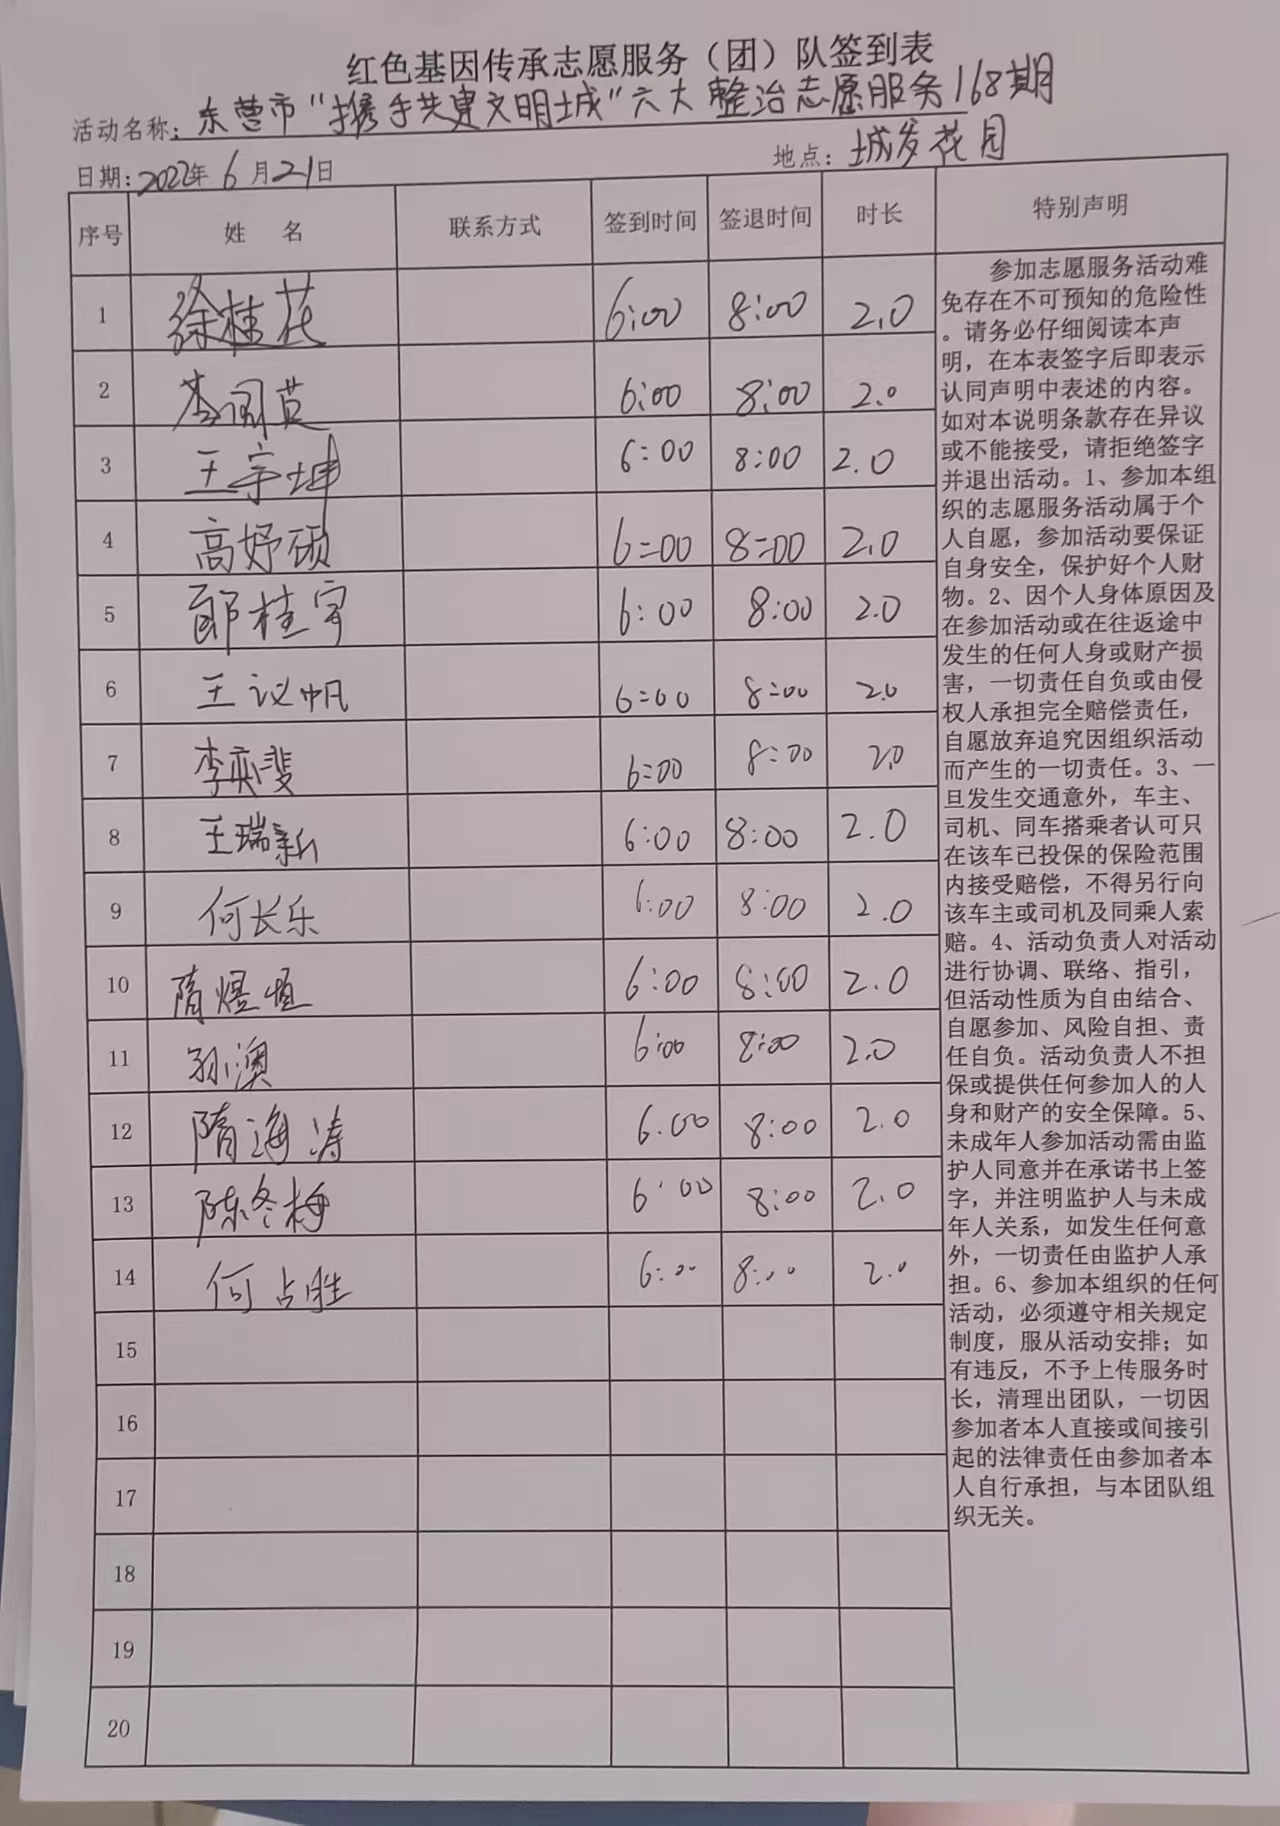 红色基因传承志愿服务（团）队签到表
活动名称：东营市“携手共建文明城”六大整治志愿服务168期
日期：2022年6月21日 地点：城发花园
序号 姓名 联系方式 签到时间 签退时间 时长 特别声明
1 徐桂花 6:00 8:00 2.0
2 李英 6:00 8:00 2.0
3 王宇坤 6:00 8:00 2.0
4 高妤硕 6:00 8:00 2.0
5 郧桂宇 6:00 8:00 2.0
6 王议帆 6:00 8:00 2.0
7 李奕斐 6:00 8:00 2.0
8 王瑞新 6:00 8:00 2.0
9 何长乐 6:00 8:00 2.0
10 隋煜恒 6:00 8:00 2.0
11 孙澳 6:00 8:00 2.0
12 隋海涛 6:00 8:00 2.0
13 陈冬梅 6:00 8:00 2.0
14 何占胜 6:00 8:00 2.0
15
16
17
18
19
20
参加志愿服务活动难
免存在不可预知的危险性
。请务必仔细阅读本声
明，在本表签字后即表示
认同声明中表述的内容。
如对本说明条款存在异议
或不能接受，请拒绝签字
并退出活动。1、参加本组
织的志愿服务活动属于个
人自愿，参加活动要保证
自身安全，保护好个人财
物。2、因个人身体原因及
在参加活动或在往返途中
发生的任何人身或财产损
害，一切责任自负或由侵
权人承担完全赔偿责任，
自愿放弃追究因组织活动
而产生的一切责任。3、一
旦发生交通意外，车主、
司机、同车搭乘者认可只
在该车已投保的保险范围
内接受赔偿，不得另行向
该车主或司机及同乘人索
赔。4、活动负责人对活动
进行协调、联络、指引，
但活动性质为自由结合、
自愿参加、风险自担、责
任自负。活动负责人不担
保或提供任何参加人的人
身和财产的安全保障。5、
未成年人参加活动需由监
护人同意并在承诺书上签
字，并注明监护人与未成
年人关系，如发生任何意
外，一切责任由监护人承
担。6、参加本组织的任何
活动，必须遵守相关规定
制度，服从活动安排；如
有违反，不予上传服务时
长，清理出团队，一切因
参加者本人直接或间接引
起的法律责任由参加者本
人自行承担，与本团队组
织无关。